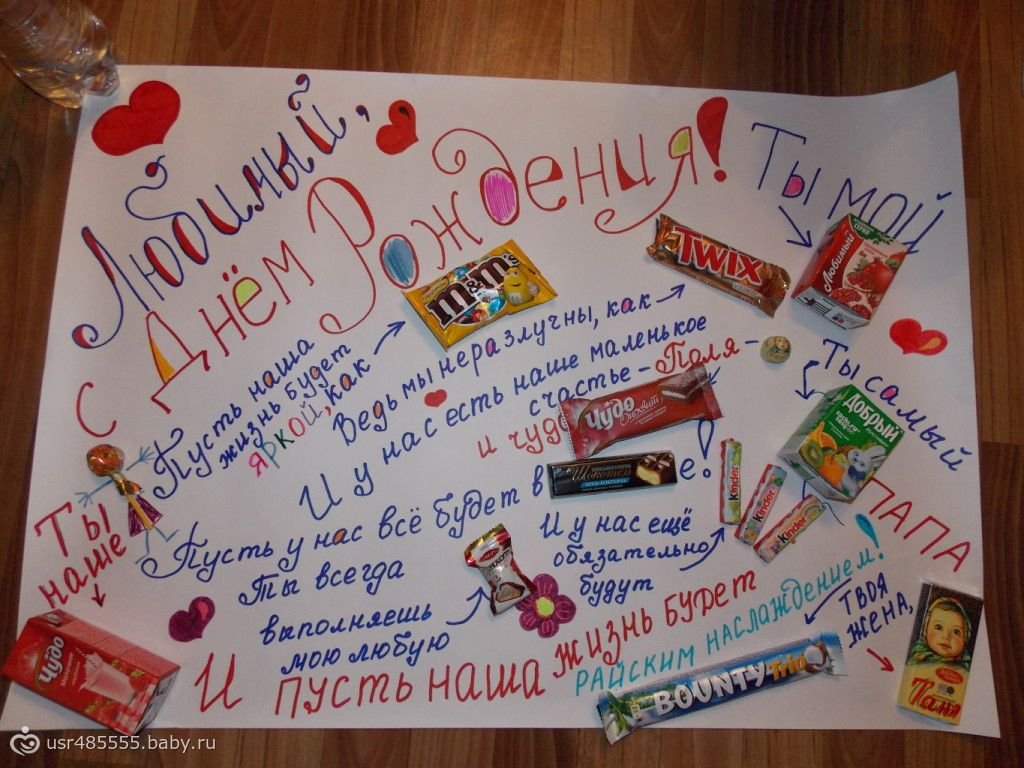 Любимый,
С Днём Рождения!
Ты мой
Любимый
Пусть наша
жизнь будет
яркой, как
m&m's
Ведь мы неразлучны, как
TWIX
И у нас есть наше маленькое
счастье - Поля -
и чудо
Чудо
Ты самый
Добрый
ПАПА
Пусть у нас всё будет в
Шокотел
е!
Ты всегда
выполняешь
мою любую
И у нас ещё
обязательно
будут
Kinder
Kinder
Kinder
Ты
наше
Чудо
И пусть наша жизнь будет
райским наслаждением!
BOUNTY Trio
Твоя
жена,
Таня
usr485555.baby.ru